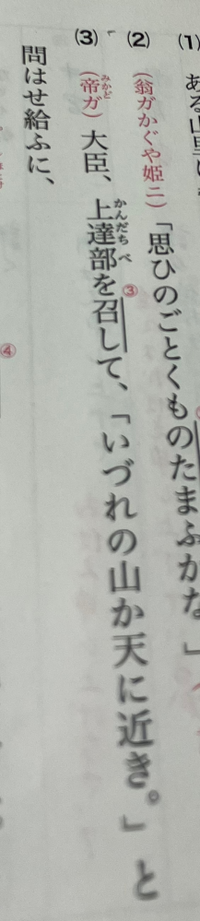 (1) ある山里に
(2) (翁ガかぐや姫ニ)「思ひのごとくものたまふかな。」
(3) (帝ガ)大臣、上達部を召して、「いづれの山か天に近き。」と
問はせ給ふに、
みかど
かんだちべ
③
④